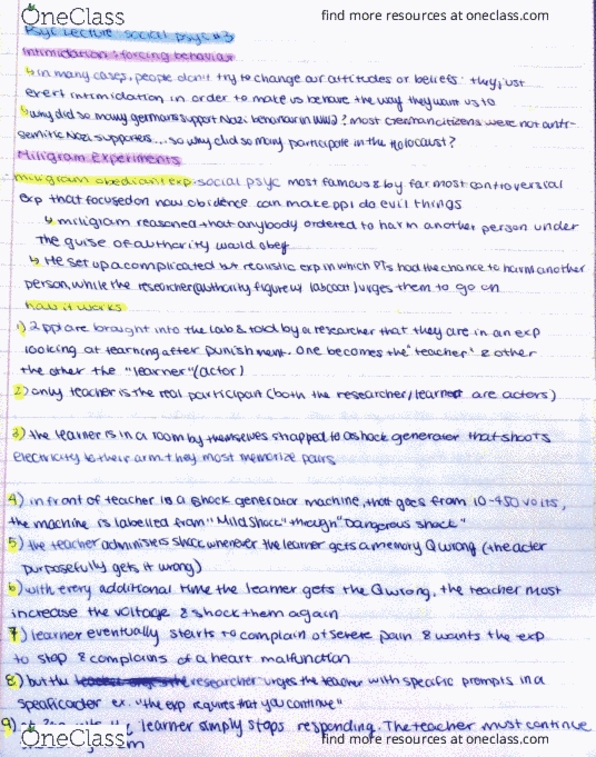 OneClass
find more resources at oneclass.com
Psyc Lecture social psyc #3
Intimidation: forcing behavior
↳ in many cases, people don't try to change our attitudes or beliefs: they just
exert intimidation in order to make us behave the way they want us to
↳ why did so many germans support Nazi behaviour in WW2? most German citizens were not anti-
semitic Nazi supporters... so why did so many participate in the Holocaust?
Miligram Experiments
miligram obediant exp. social psyc most famous & by far most controversial
exp that focused on how obidence can make ppl do evil things
↳ miligram reasoned that anybody ordered to harm another person under
the guise of authority would obey
↳ He set up a complicated but realistic exp in which PTs had the chance to harm another
person, while the researcher (authority figure w/ labcoat) urges them to go on
how it works
1) 2 ppl are brought into the lab & told by a researcher that they are in an exp
looking at learning after punishment. One becomes the "teacher" & other
the other the "learner" (actor)
2) only teacher is the real participant (both the researcher/learner are actors)
3) the learner is in a room by themselves strapped to a shock generator that shoots
electricity to their arm they most memorize pairs
4) in front of teacher is a shock generator machine, that goes from 10-450 volts,
the machine is labelled from "Mild Shock" through "Dangerous shock"
5) the teacher administers shock whenever the learner gets a memory Q wrong (the acter
purposefully gets it wrong)
6) with every additional time the learner gets the Q wrong, the teacher most
increase the voltage & shock them again
7) learner eventually starts to complain of severe pain & wants the exp
to stop & complains of a heart malfunction
8) but the researcher urges the teacher with specific prompts in a
specific order ex. "the exp requires that you continue"
9) learner simply stops responding. The teacher must continue
OneClass
find more resources at oneclass.com